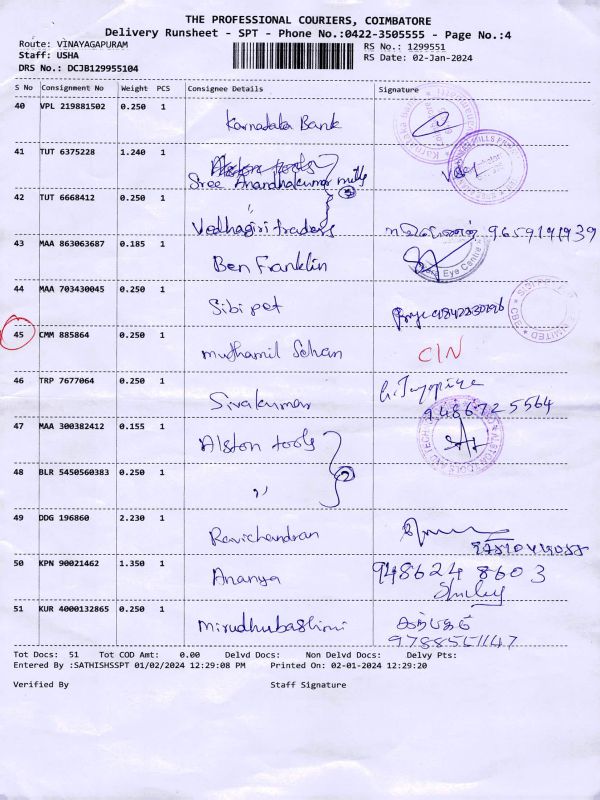 THE PROFESSIONAL COURIERS, COIMBATORE
Delivery Runsheet - SPT - Phone No.:0422-3505555 - Page No.:4
Route: VINAYAGAPURAM
Staff: USHA
DRS No.: DCJB129955104
RS No.: 1299551
RS Date: 02-Jan-2024
S No Consignment No Weight PCS Consignee Details Signature
40 VPL 219881502 0.250 1 Karnataka Bank
41 TUT 6375228 1.240 1 Alston tools
Sree Anandhakumar mills
42 TUT 6668412 0.250 1 Vedhagiri traders 9659191939
43 MAA 863063687 0.185 1 Ben Franklin
Eye Centre
44 MAA 703430045 0.250 1 Sibi pet
45 CMM 885864 0.250 1 CIN
46 TRP 7677064 0.250 1 Sivakumar
9486725564
47 MAA 300382412 0.155 1 Alston tools
48 BLR 5450560383 0.250 1 ,,
49 DDG 196860 2.230 1 Ravichandran
50 KPN 90021462 1.350 1 Ananya 948624 8603
Shirley
51 KUR 4000132865 0.250 1 Mirudhubashini
Tot Docs: 51 Tot COD Amt: 0.00 Delvd Docs: Non Delvd Docs: Delvy Pts:
Entered By :SATHISHSSPT 01/02/2024 12:29:08 PM Printed On: 02-01-2024 12:29:20
Verified By Staff Signature